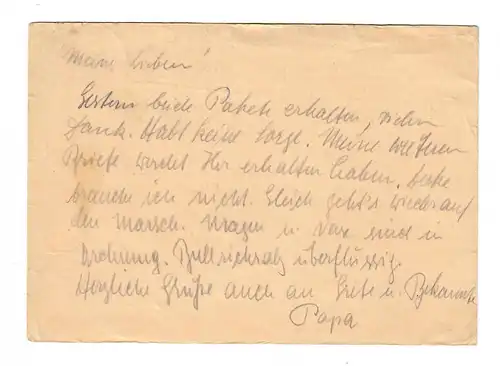 Meine Lieben!
Gestern beide Pakete erhalten, vielen
Dank. Habt keine Sorge. Meine weiteren
Briefe werdet Ihr erhalten haben. Decke
brauche ich nicht. Gleich geht's wieder auf
den Marsch. Magen u. Nase sind in
Ordnung. Bullrichsalz überflüssig.
Herzliche Grüße auch an Grete u. Bekannte
Papa